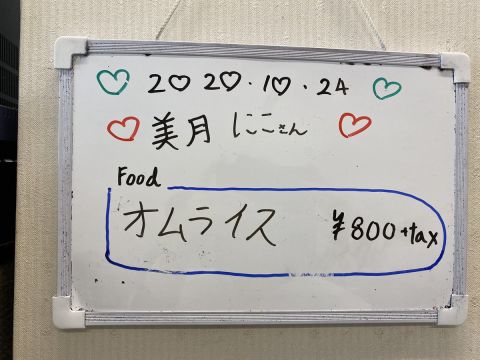 2♡2♡.1♡.24
美月 にこさん
Food
オムライス ¥800+tax